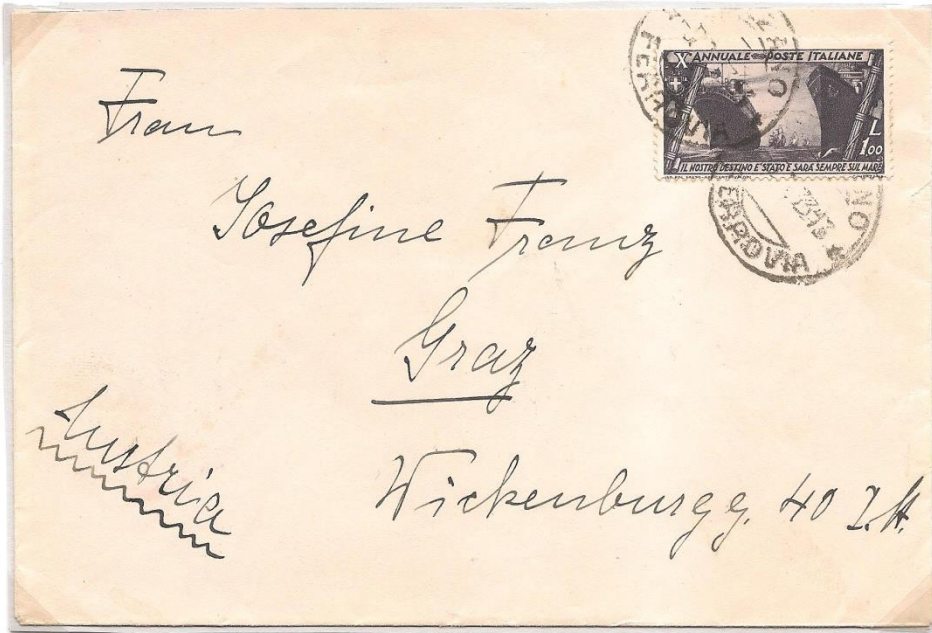 X ANNUALE POSTE ITALIANE
L
1,00
IL NOSTRO DESTINO E' STATO E SARÀ SEMPRE SUL MARE
FERROVIA
FERROVIA
Frau
Josefine Franz
Graz
Austria
Wickenburgg. 40 I. St.